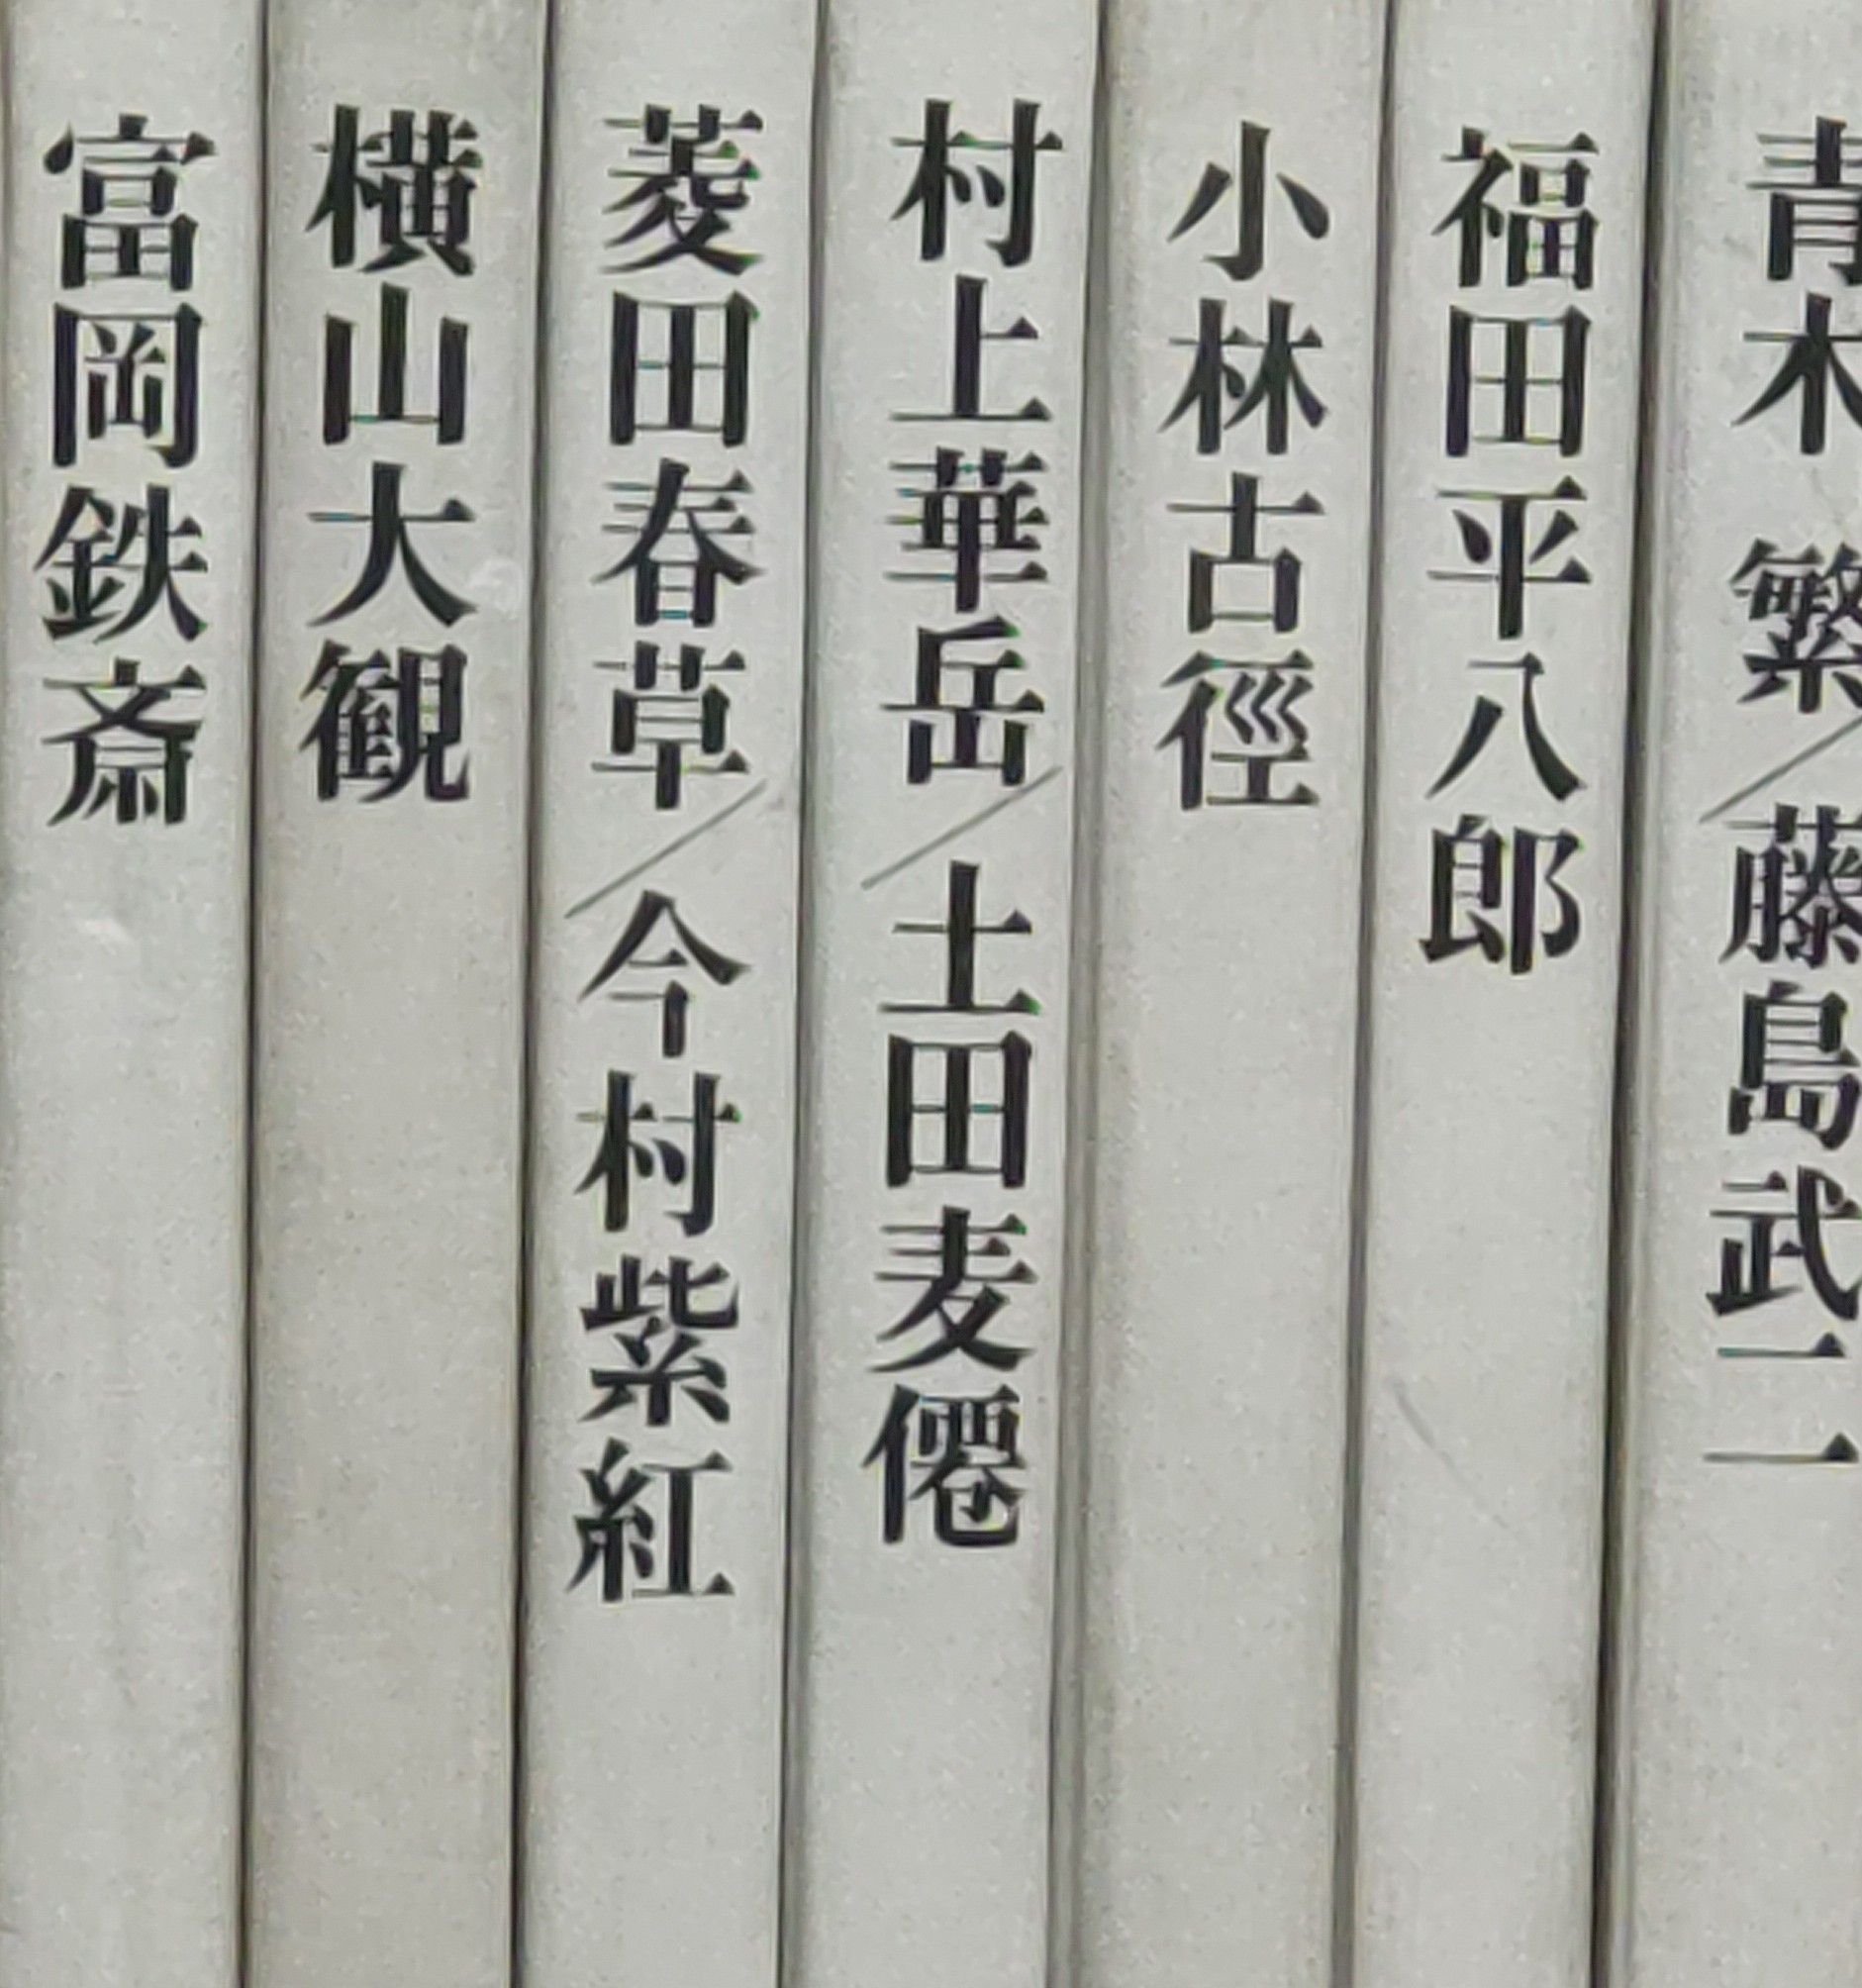 富岡鉄斎
横山大観
菱田春草／今村紫紅
村上華岳／土田麦僊
小林古徑
福田平八郎
青木繁／藤島武二